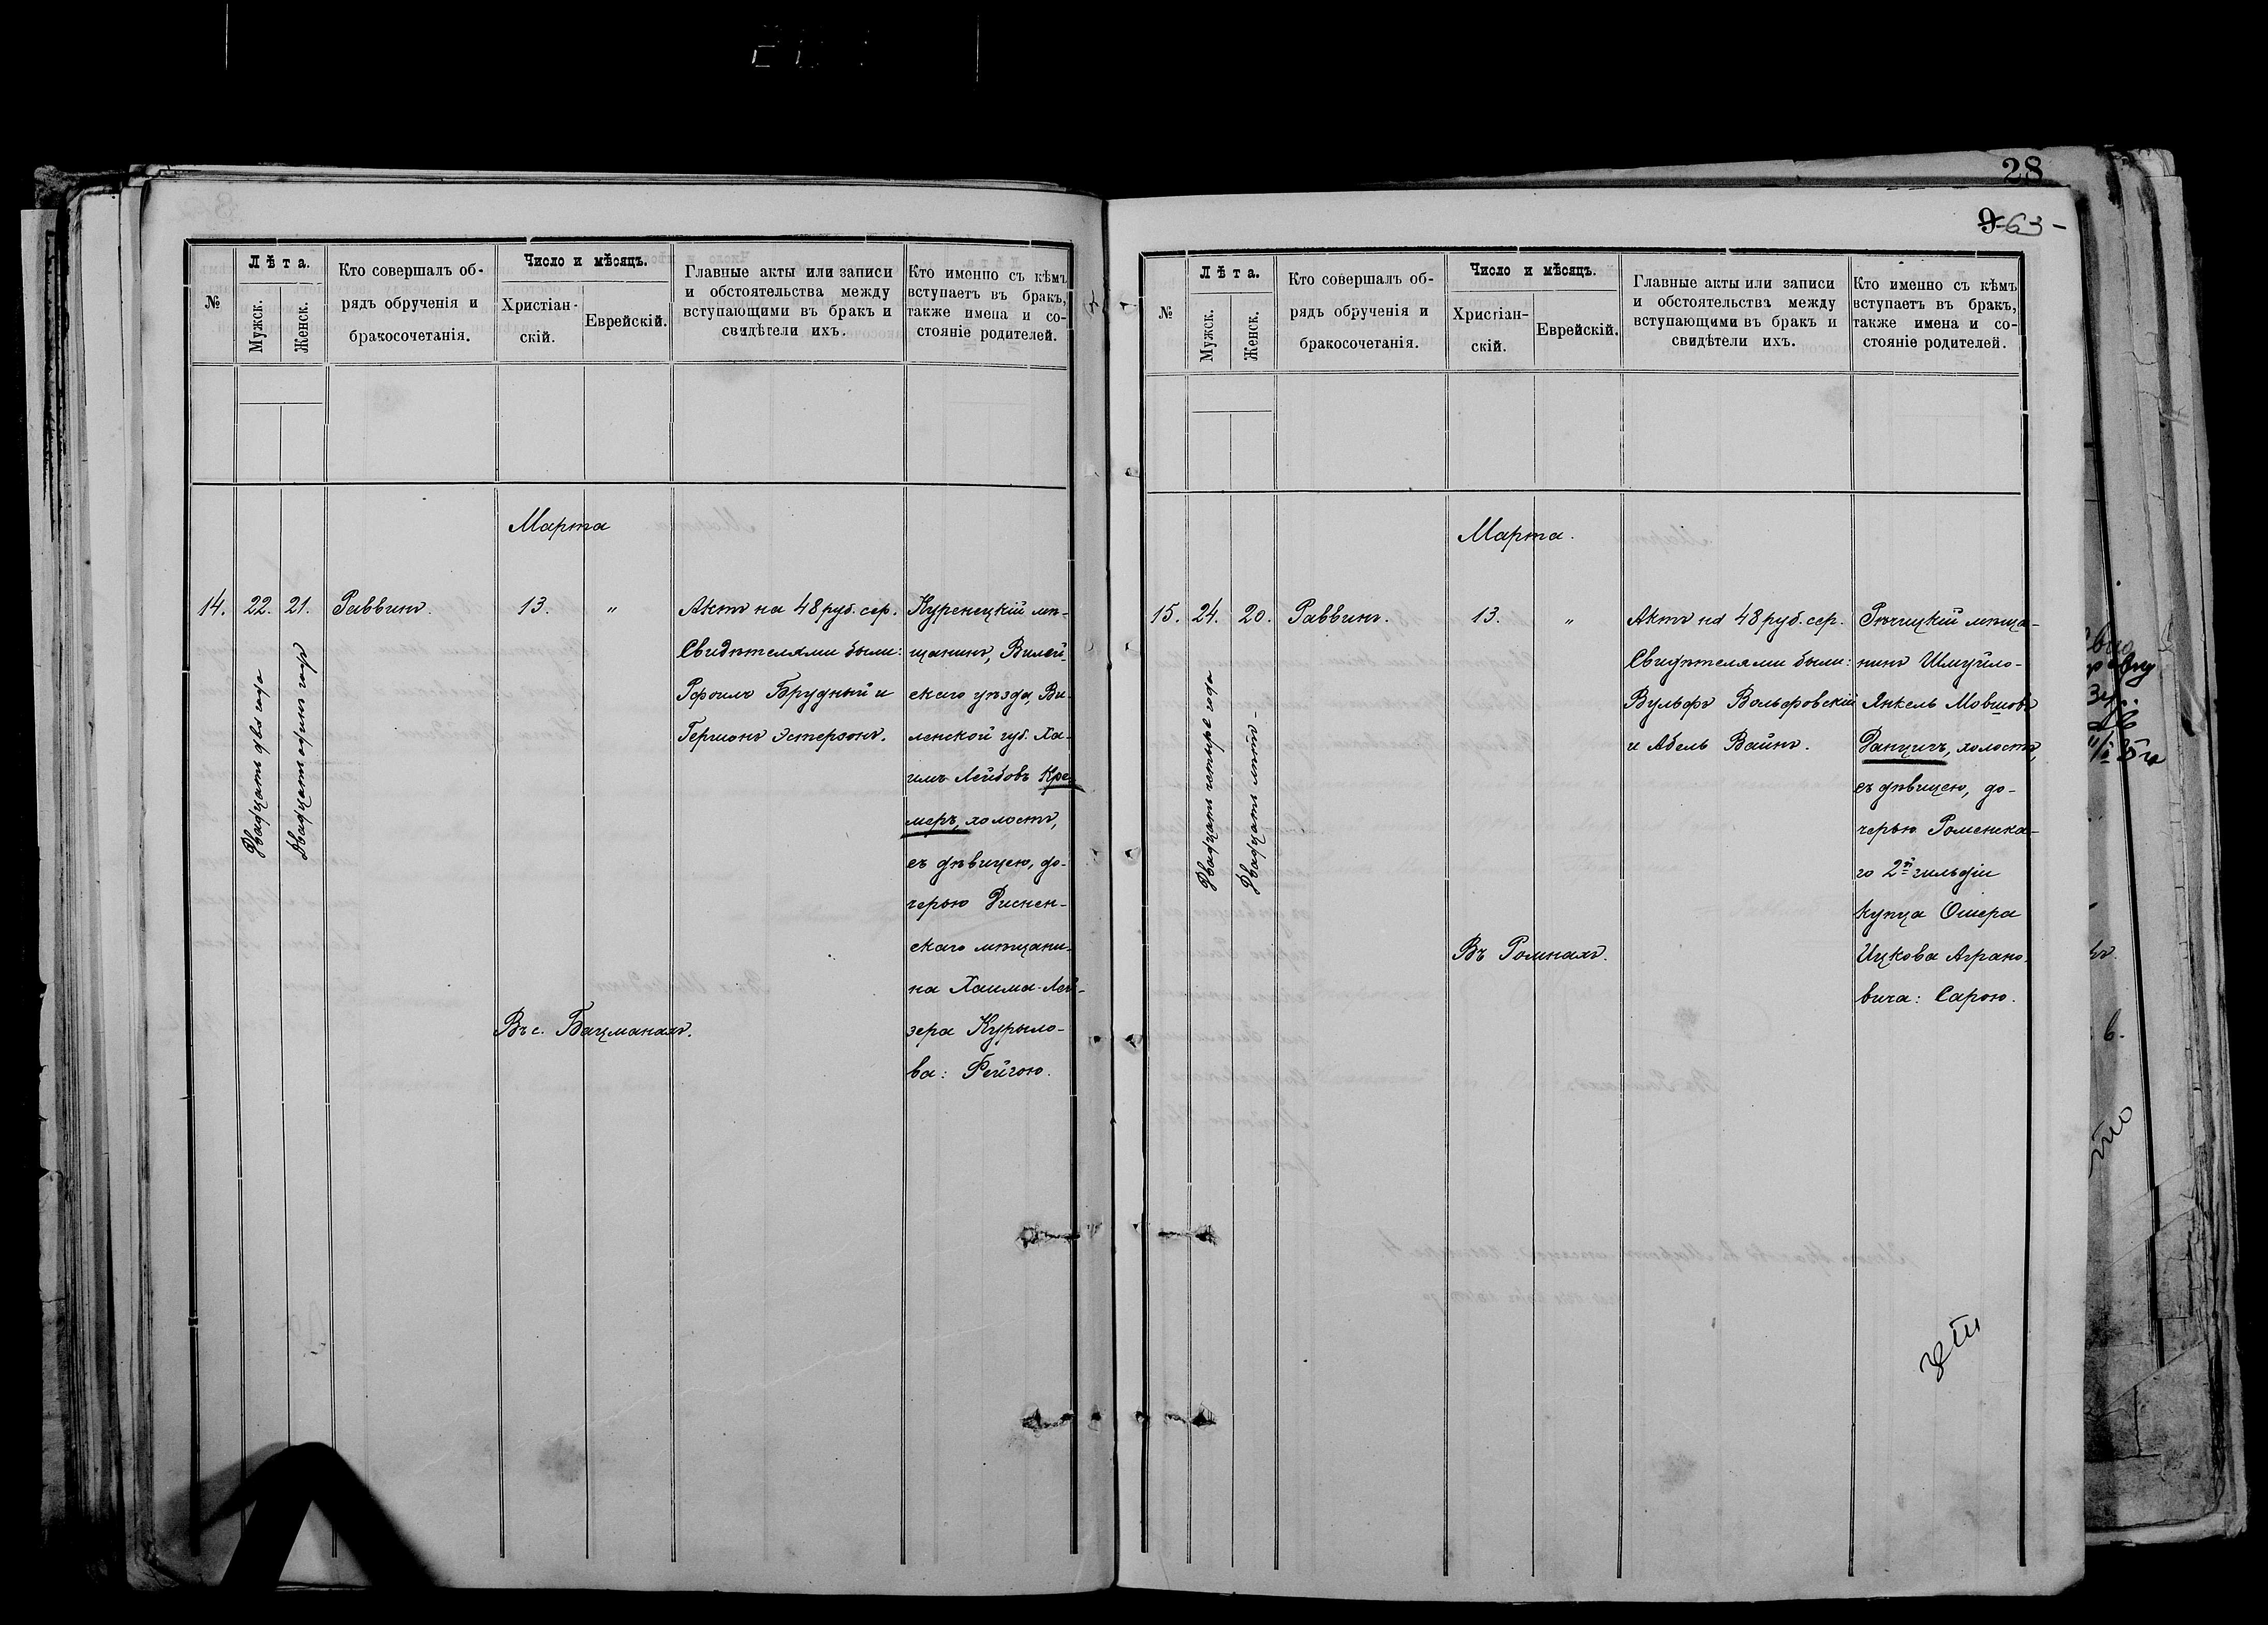 28
9 63 -
№
Лѣта.
Мужск.
Женск.
Кто совершалъ об-
рядъ обрученія и
бракосочетанія.
Число и мѣсяцъ.
Христіан-
скій.
Еврейскій.
Главные акты или записи
и обстоятельства между
вступающими въ бракъ и
свидѣтели ихъ.
Кто именно съ кѣмъ
вступаетъ въ бракъ,
также имена и со-
стояніе родителей.
Марта
14.
22.
21.
Двадцать два года
Двадцать одинъ годъ
Раввинъ.
13.
"
Въ с. Бацманахъ.
Актъ на 48 руб. сер.
Свидѣтелями были:
Рфоилъ Брудный и
Гершонъ Эстерзонъ.
Куренецкій мѣ-
щанинъ, Вилей-
скаго уѣзда, Ви-
ленской губ. Ха-
имъ Лейбовъ Кре-
меръ, холостъ,
съ дѣвицею, до-
черью Диснен-
скаго мѣщани-
на Хаима-Лей-
зера Курыло-
ва: Фейгою.
№
Лѣта.
Мужск.
Женск.
Кто совершалъ об-
рядъ обрученія и
бракосочетанія.
Число и мѣсяцъ.
Христіан-
скій.
Еврейскій.
Главные акты или записи
и обстоятельства между
вступающими въ бракъ и
свидѣтели ихъ.
Кто именно съ кѣмъ
вступаетъ въ бракъ,
также имена и со-
стояніе родителей.
Марта.
15.
24.
20.
Двадцать четыре года
Двадцать лѣтъ -
Раввинъ.
13.
"
Въ Ромнахъ.
Актъ на 48 руб. сер.
Свидѣтелями были:
Вульфъ Вольфовскій
и Абель Вайнъ.
Рѣчицкій мѣща-
нинъ Шмуйло-
Янкель Мовшовъ
Данцигъ, холостъ,
съ дѣвицею, до-
черью Роменска-
го 2й гильдіи
купца Ошера
Ицкова Аграно-
вича: Сарою.